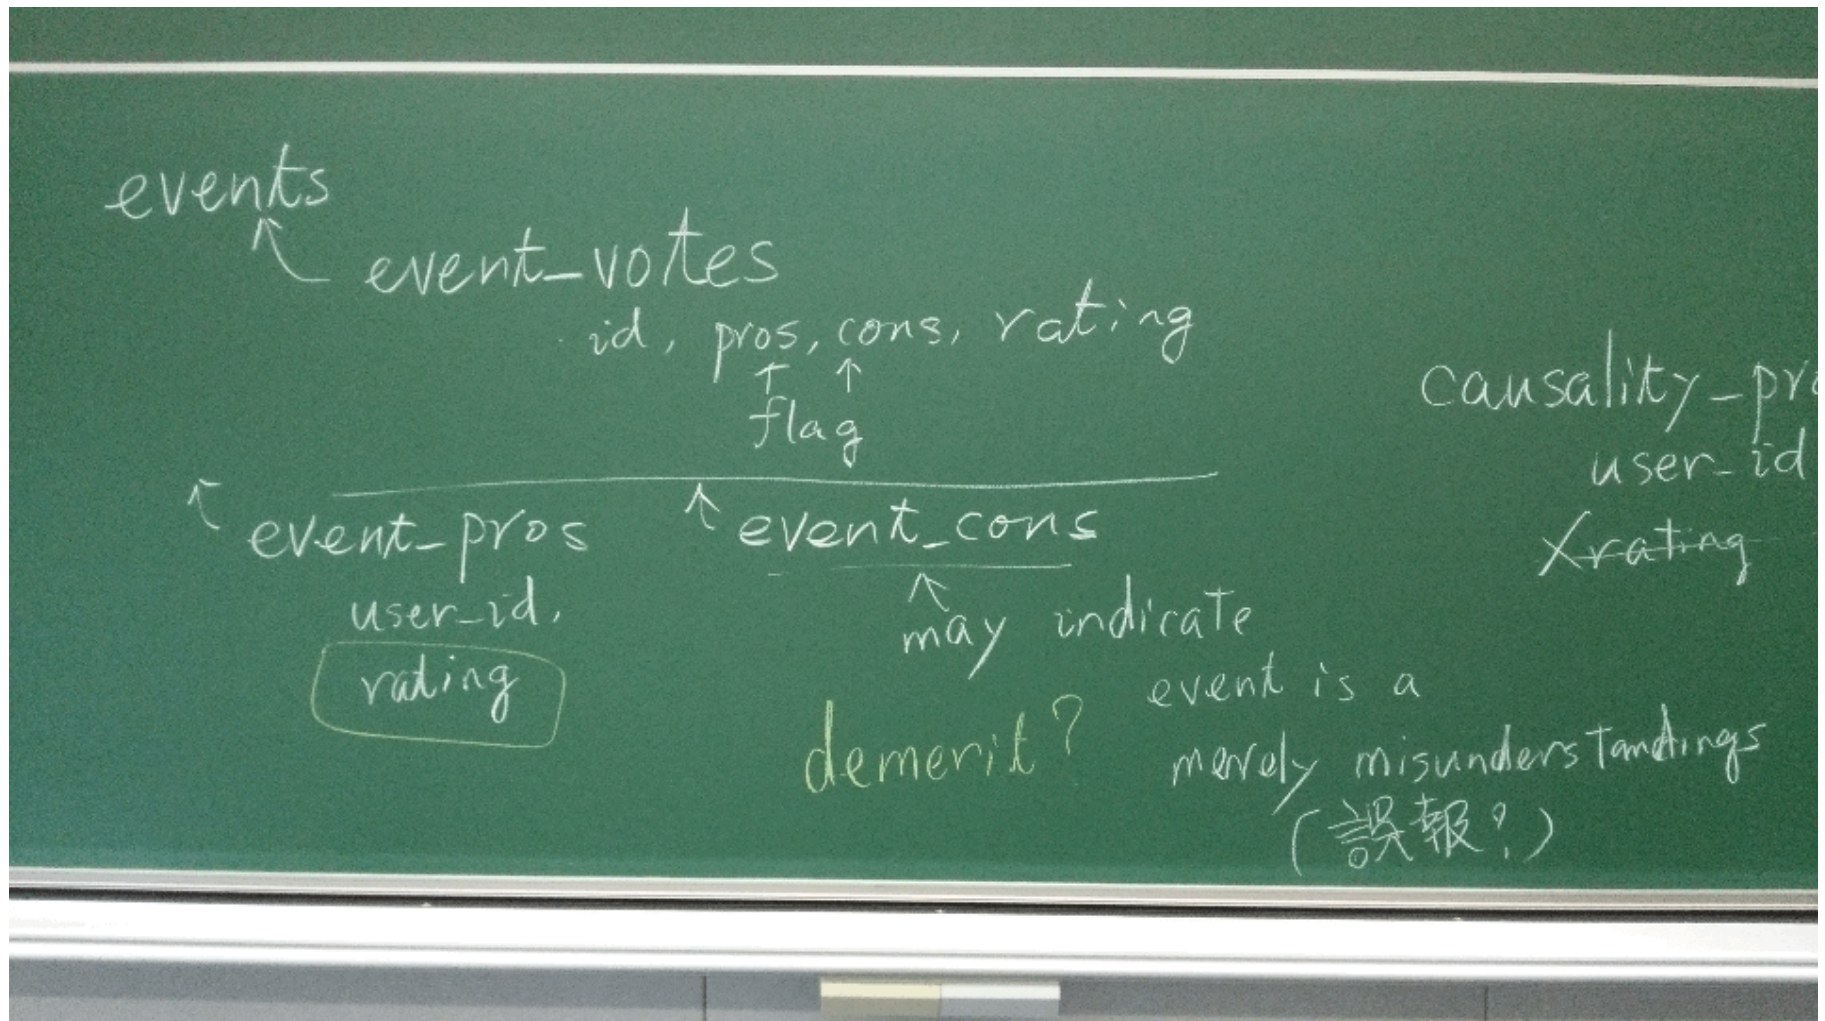 events
event_votes
id, pros, cons, rating
flag
event_pros
user_id,
rating
event_cons
may indicate
event is a
merely misunderstandings
(誤報?)
demerit?
causality_pro
user_id
×rating